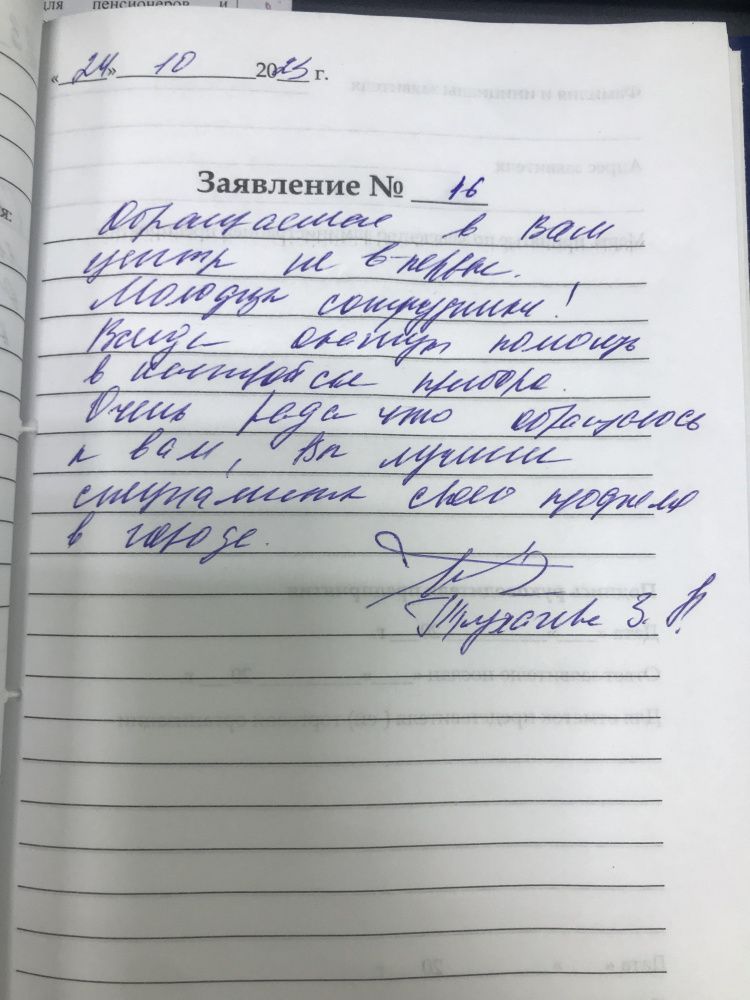 для пенсионеров и
«24» 10 2023 г.
Заявление № 16
Обращаемся в Вам
центр не в-первые.
Молодцы сотрудники!
Всегда окажут помощь
в настройке прибора.
Очень рада что обращаюсь
к вам, Вы лучшие
специалисты своего профиля
в городе.
З.